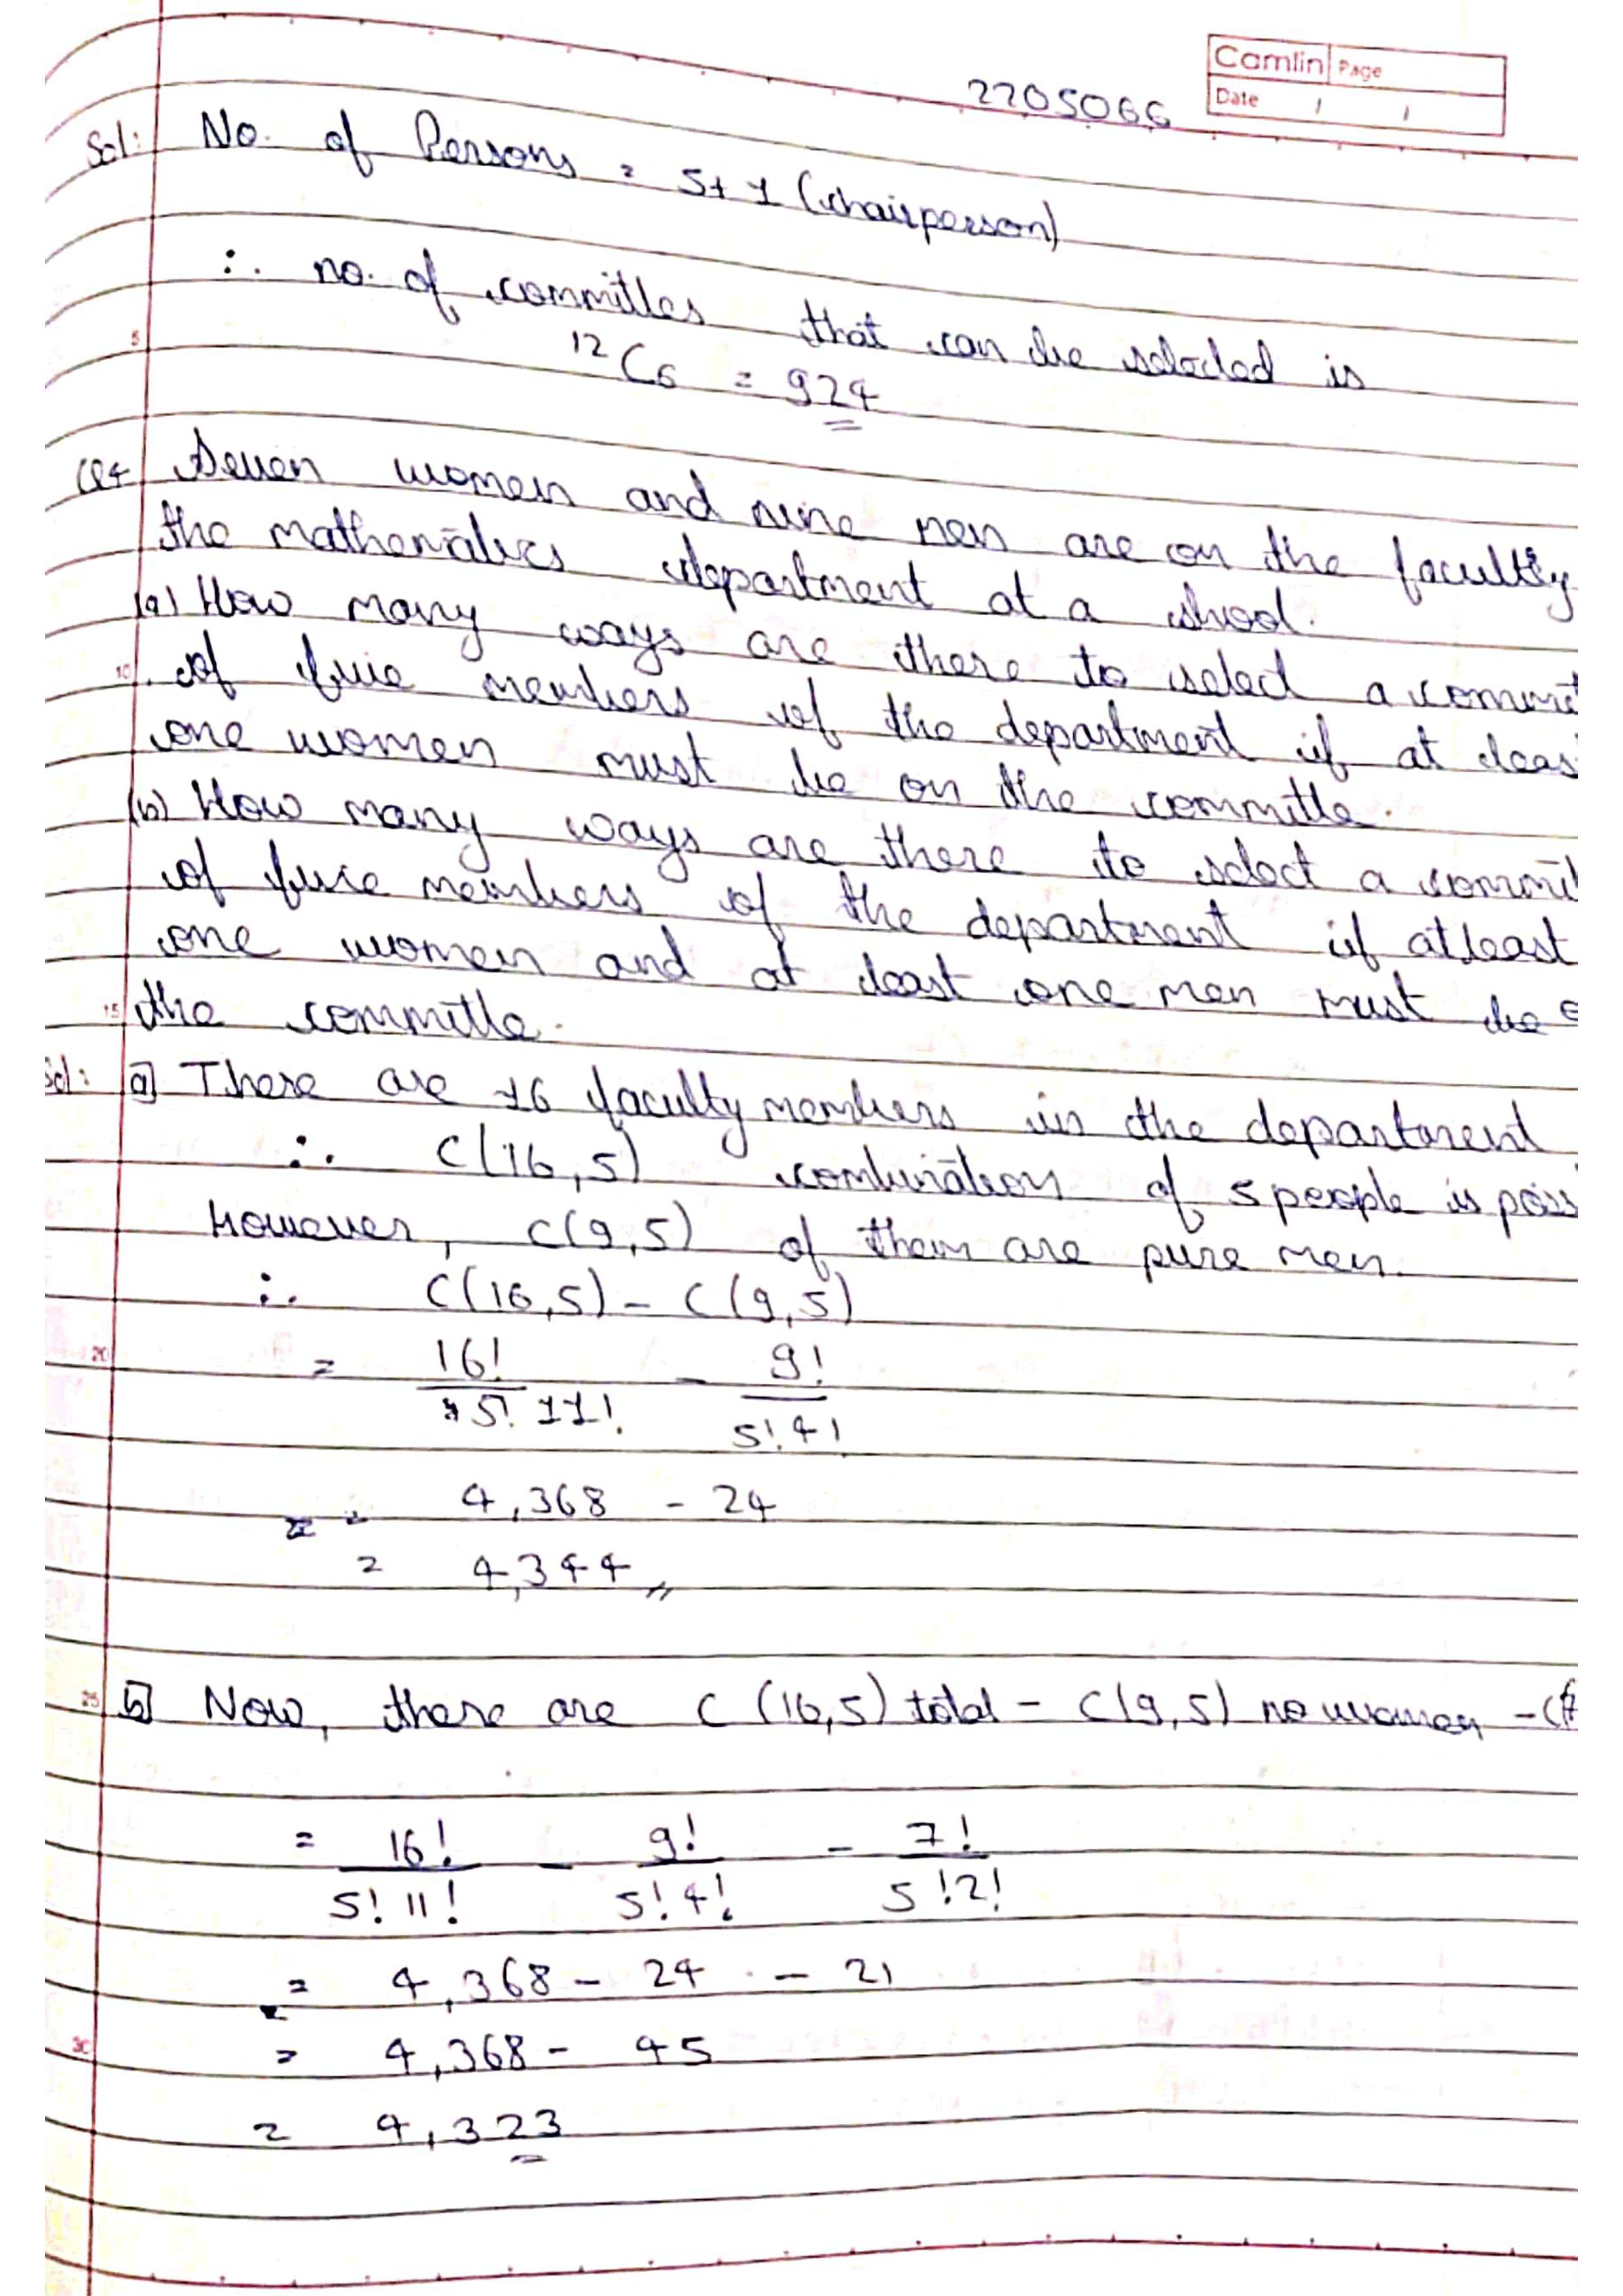 2205066
Camlin Page
Date / /
Sol: No. of Persons = 5+1 (chairperson)
∴ no. of committes that can be selected is
5
¹²C₆ = 924
Q4 Seven women and nine men are on the faculty
the mathematics department at a school.
(a) How many ways are there to select a commit
10 of five members of the department if at leas
one women must be on the committe.
(b) How many ways are there to select a commit
of five members of the department if atleast
one women and at least one men must be o
15 the committe.
Sol: a] There are 16 faculty members in the department
∴ C(16,5) combination of 5 people is poss
However, C(9,5) of them are pure men.
∴ C(16,5) - C(9,5)
20 = 16!/5! 11! - 9!/5! 4!
= 4,368 - 24
= 4,344
25 b] Now, there are C(16,5) total - C(9,5) no women - C(7
= 16!/5! 11! - 9!/5! 4! - 7!/5! 2!
= 4,368 - 24 - 21
30 = 4,368 - 45
= 4,323